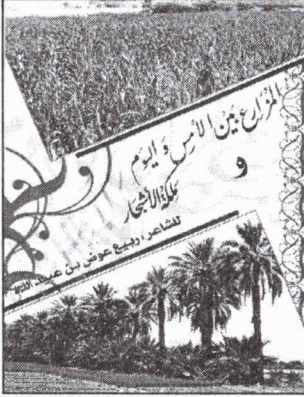 المزارع بين الأمس واليوم
و
مملكة الأشجار
للشاعر: ربيع عوض بن عبيد الله